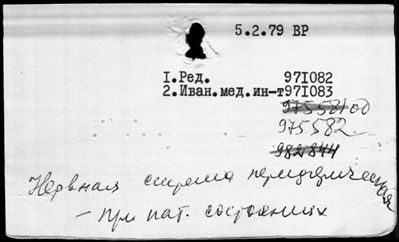 5.2.79 ВР
I.Ред. 97I082
2.Иван.мед.ин-т97I083
975581 од
975582
982844
Нервная система периферическая
- при пат. состояниях